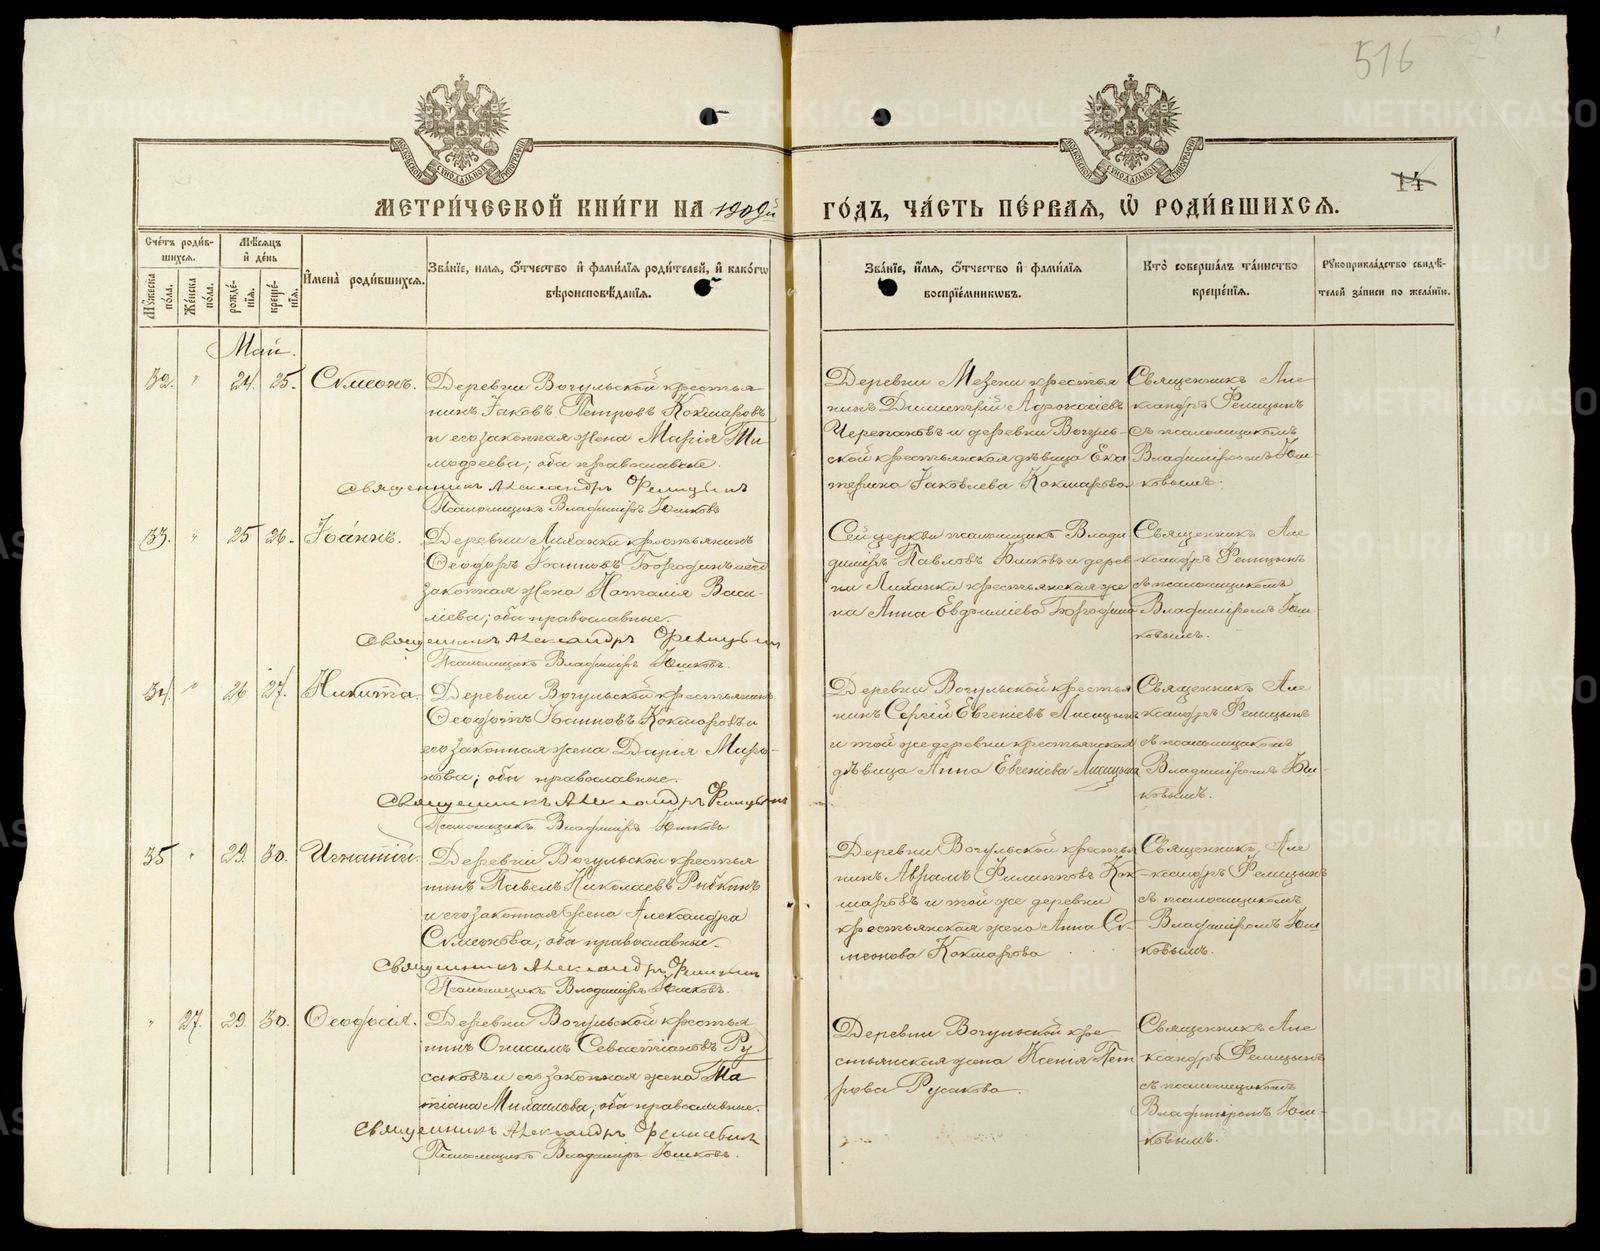 516
14
МЕТРИ́ЧЕСКОЙ КНИ́ГИ НА 1909й ГО́ДЪ, ЧА́СТЬ ПЕ́РВАЯ, Ѡ РОДИ́ВШИХСЯ.
Сче́тъ роди́в-
шихся.
Мѣ́сяцъ
и́ де́нь
Мꙋ́жеска по́ла.
Же́нска по́ла.
рожде́-нїя.
креще́-нїя.
И҆мена̀ роди́вшихся.
Зва́нїе, и҆́мя, о҆́тчество и҆ фами́лїя роди́телей, и҆ како́гѡ
вѣроисповѣ́данїя.
Зва́нїе, и҆́мя, о҆́тчество и҆ фами́лїя
воспрїе́мникѡвъ.
Кто̀ соверша́лъ та́инство
креще́нїя.
Рꙋкоприкла́дство свидѣ́-
телей за́писи по жела́нїю.
Май.
32. " 24. 25. Сѵмеонъ.
Деревни Вогульской крестья
нинъ Іаковъ Петровъ Кокшаровъ
и его законная жена Марія Ти
мофеева; оба православные.
Священникъ Александръ Фелицынъ
Псаломщикъ Владиміръ Юшковъ
Деревни Мезени крестья
нинъ Димитрій Афонасіевъ
Черепановъ и деревни Вогуль-
ской крестьянская дѣвица Ека
терина Іаковлева Кокшарова
Священникъ Але
ксандръ Фелицынъ
съ псаломщикомъ
Владиміромъ Юш-
ковымъ.
33. " 25 26. Іоаннъ.
Деревни крестьянинъ
Ѳеодоръ Іоанновъ Бородинъ и его
законная жена Наталія Васи-
лiева; оба православные.
Священникъ Александръ Фелицынъ
Псаломщикъ Владиміръ Юшковъ.
Сей церкви псаломщикъ Влади
міръ Павловъ Юшковъ и дерев
ни крестьянская же
на Анна Евфиміева Бородина
Священникъ Але
ксандръ Фелицынъ
съ псаломщикомъ
Владиміромъ Юш-
ковымъ.
34. " 26 27. Никита.
Деревни Вогульской крестьянинъ
Ѳеодотъ Іоанновъ Кокшаровъ и
его законная жена Дарія Миро-
нова; оба православные.
Священникъ Александръ Фелицынъ
Псаломщикъ Владиміръ Юшковъ
Деревни Вогульской крестья
нинъ Сергій Евгеніевъ Лисицынъ
и той же деревни крестьянская
дѣвица Анна Евгеніева Лисицына
Священникъ Але
ксандръ Фелицынъ
съ псаломщикомъ
Владиміромъ Юш-
ковымъ.
35 " 29. 30. Игнатій.
Деревни Вогульской крестья
нинъ Павелъ Николаевъ
и его законная жена Александра
Сѵмеонова; оба православные.
Священникъ Александръ Фелицынъ
Псаломщикъ Владиміръ Юшковъ.
Деревни Вогульской крестья
нинъ Аврамъ Филипповъ Кок
шаровъ и той же деревни
крестьянская жена Анна Сѵ-
меонова Кокшарова
Священникъ Але
ксандръ Фелицынъ
съ псаломщикомъ
Владиміромъ Юш
ковымъ.
" 27. 29. 30. Ѳеодосія.
Деревни Вогульской крестья
нинъ Онисимъ Севастіановъ Ру
саковъ и его законная жена Та
тіана Михаилова; оба православные.
Священникъ Александръ Фелицынъ
Псаломщикъ Владиміръ Юшковъ.
Деревни Вогульской кре
стьянская жена Ксенія Пет
рова Русакова.
Священникъ Але
ксандръ Фелицынъ
съ псаломщикомъ
Владиміромъ Юш-
ковымъ.
METRIKI.GASO-URAL.RU